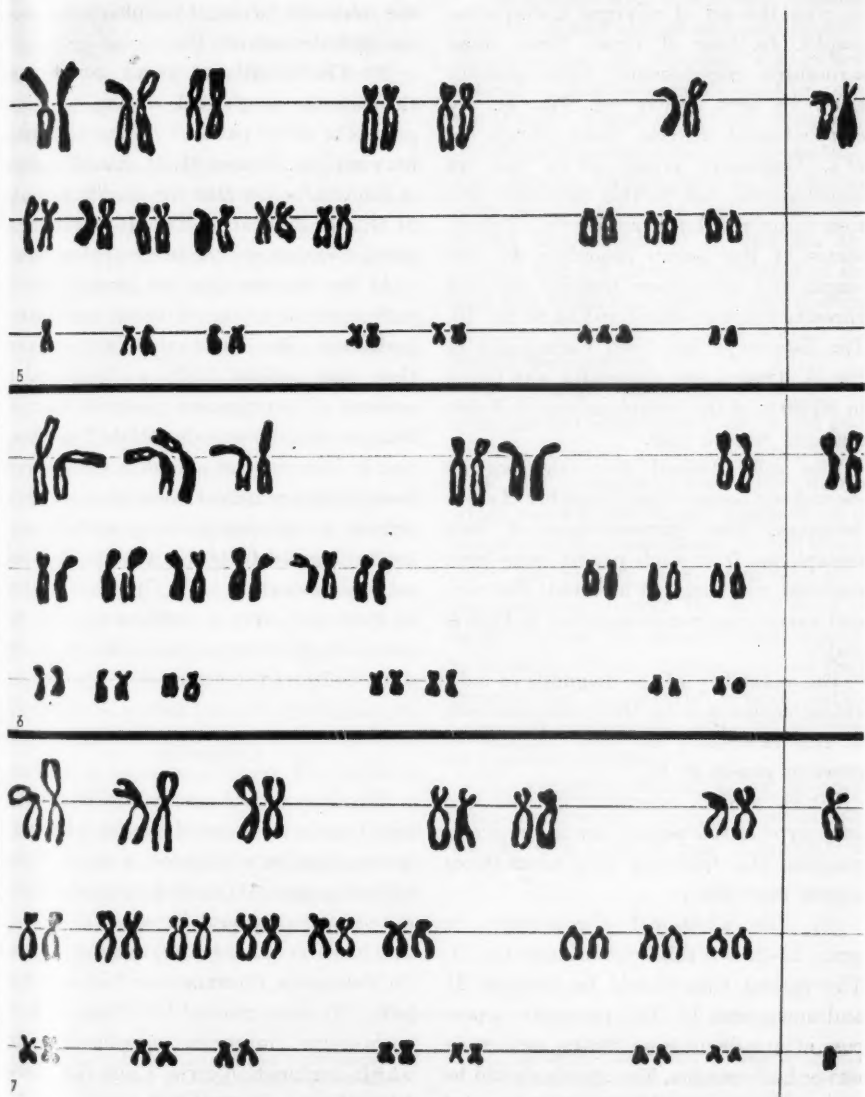 5
6
7